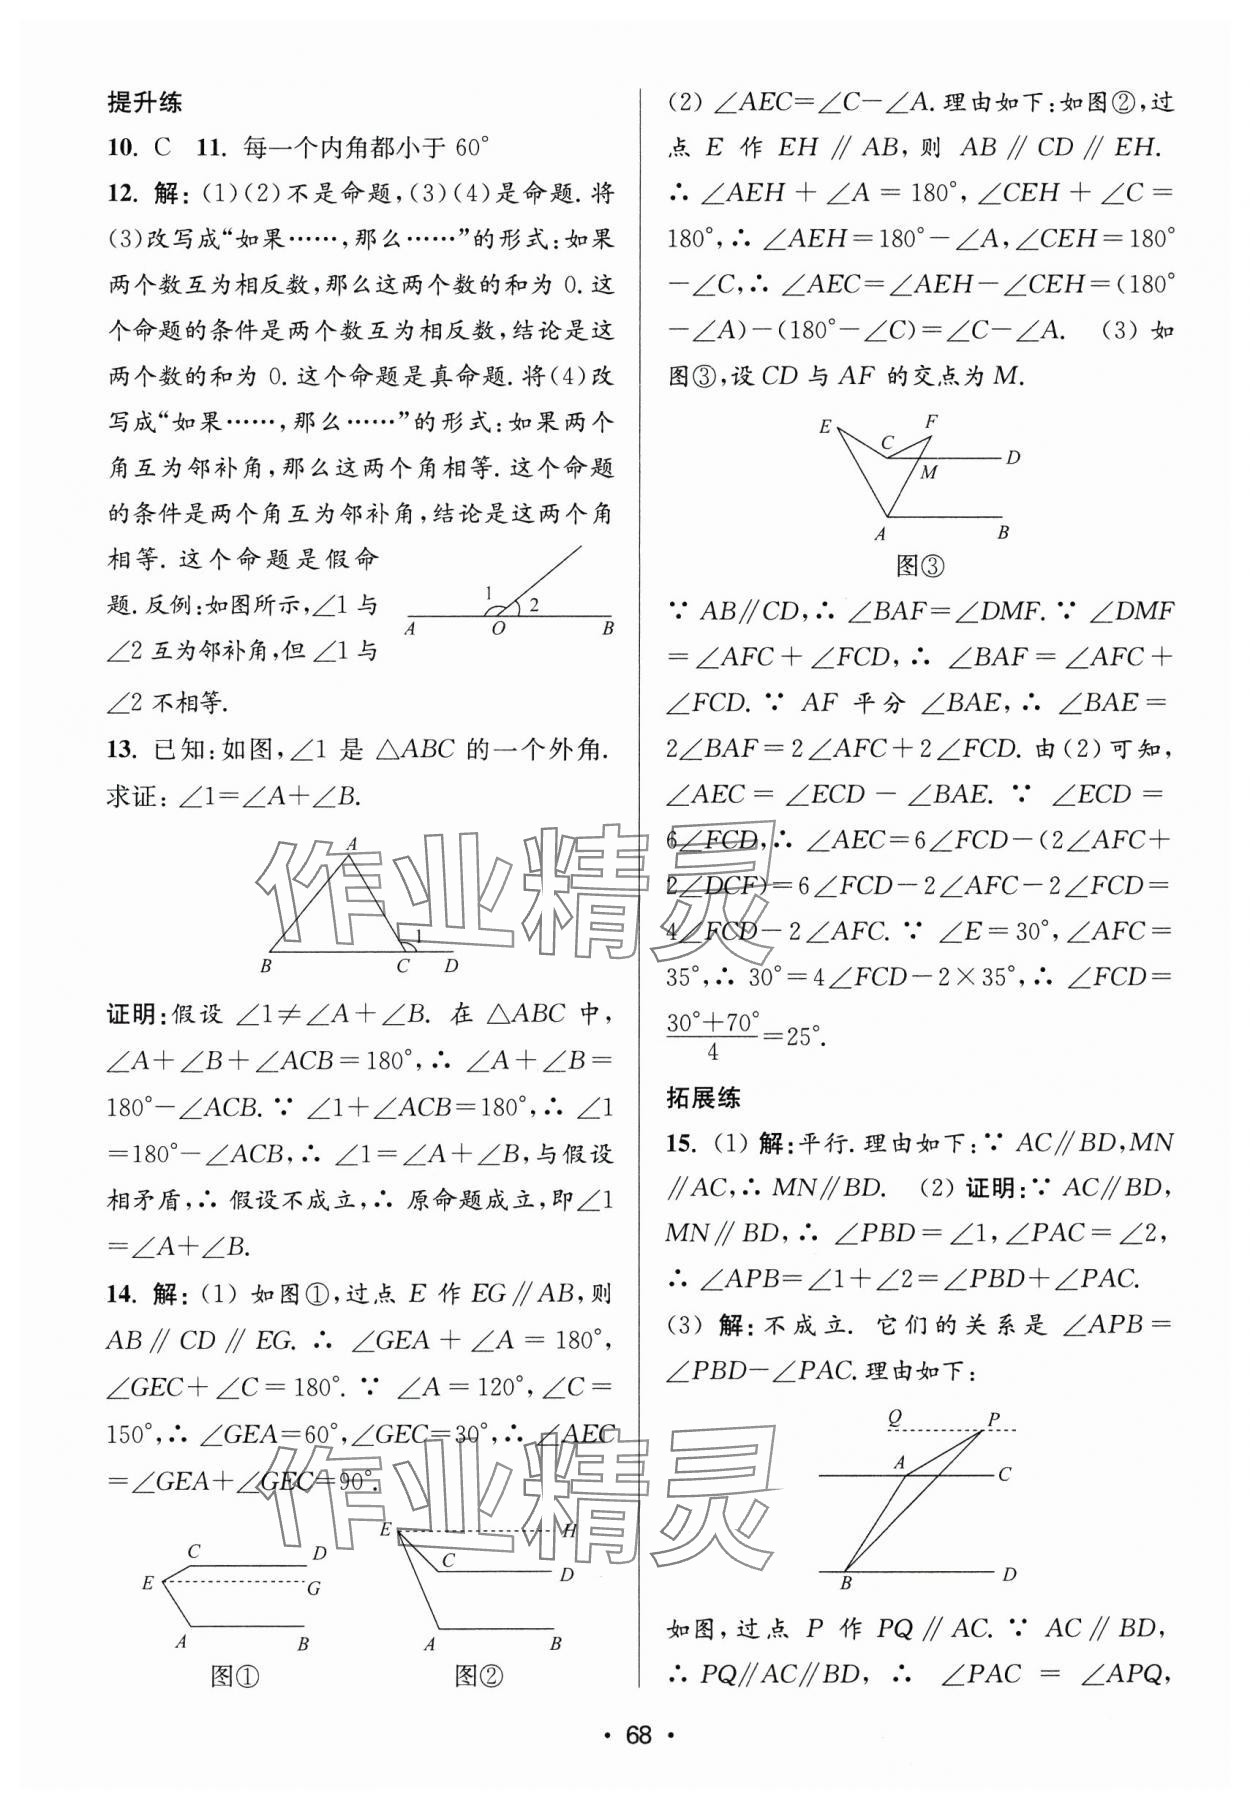 提升练
10. C  11. 每一个内角都小于 60°
12. 解:(1)(2)不是命题,(3)(4)是命题. 将
(3)改写成“如果……,那么……”的形式:如果
两个数互为相反数,那么这两个数的和为 0. 这
个命题的条件是两个数互为相反数,结论是这
两个数的和为 0. 这个命题是真命题. 将(4)改
写成“如果……,那么……”的形式:如果两个
角互为邻补角,那么这两个角相等. 这个命题
的条件是两个角互为邻补角,结论是这两个角
相等. 这个命题是假命
题. 反例:如图所示,∠1 与
∠2 互为邻补角,但∠1 与
∠2 不相等.
1
2
A
O
B
13. 已知:如图,∠1 是 △ABC 的一个外角.
求证:∠1=∠A+∠B.
A
1
B
C
D
证明:假设 ∠1≠∠A+∠B. 在 △ABC 中,
∠A+∠B+∠ACB=180°,∴ ∠A+∠B=
180°-∠ACB. ∵ ∠1+∠ACB=180°,∴ ∠1
=180°-∠ACB,∴ ∠1=∠A+∠B,与假设
相矛盾,∴ 假设不成立,∴ 原命题成立,即∠1
=∠A+∠B.
14. 解:(1) 如图①,过点 E 作 EG∥AB,则
AB∥CD∥EG. ∴ ∠GEA+∠A=180°,
∠GEC+∠C=180°. ∵ ∠A=120°,∠C=
150°,∴ ∠GEA=60°,∠GEC=30°,∴ ∠AEC
=∠GEA+∠GEC=90°.
C
D
E
G
A
B
图①
E
H
C
D
A
B
图②
(2) ∠AEC=∠C-∠A. 理由如下:如图②,过
点 E 作 EH∥AB,则 AB∥CD∥EH.
∴ ∠AEH+∠A=180°,∠CEH+∠C=
180°,∴ ∠AEH=180°-∠A,∠CEH=180°
-∠C,∴ ∠AEC=∠AEH-∠CEH=(180°
-∠A)-(180°-∠C)=∠C-∠A.  (3) 如
图③,设 CD 与 AF 的交点为 M.
E
F
C
D
M
A
B
图③
∵ AB∥CD,∴ ∠BAF=∠DMF. ∵ ∠DMF
=∠AFC+∠FCD,∴ ∠BAF=∠AFC+
∠FCD. ∵ AF 平分 ∠BAE,∴ ∠BAE=
2∠BAF=2∠AFC+2∠FCD. 由(2)可知,
∠AEC=∠ECD-∠BAE. ∵ ∠ECD=
6∠FCD,∴ ∠AEC=6∠FCD-(2∠AFC+
2∠DCF)=6∠FCD-2∠AFC-2∠FCD=
4∠FCD-2∠AFC. ∵ ∠E=30°,∠AFC=
35°,∴ 30°=4∠FCD-2×35°,∴ ∠FCD=
(30°+70°)/4=25°.
拓展练
15. (1) 解:平行. 理由如下:∵ AC∥BD,MN
∥AC,∴ MN∥BD.  (2) 证明:∵ AC∥BD,
MN∥BD,∴ ∠PBD=∠1,∠PAC=∠2,
∴ ∠APB=∠1+∠2=∠PBD+∠PAC.
(3) 解:不成立. 它们的关系是 ∠APB=
∠PBD-∠PAC. 理由如下:
Q
P
A
C
B
D
如图,过点 P 作 PQ∥AC. ∵ AC∥BD,
∴ PQ∥AC∥BD,∴ ∠PAC=∠APQ,
· 68 ·
作业精灵
作业精灵